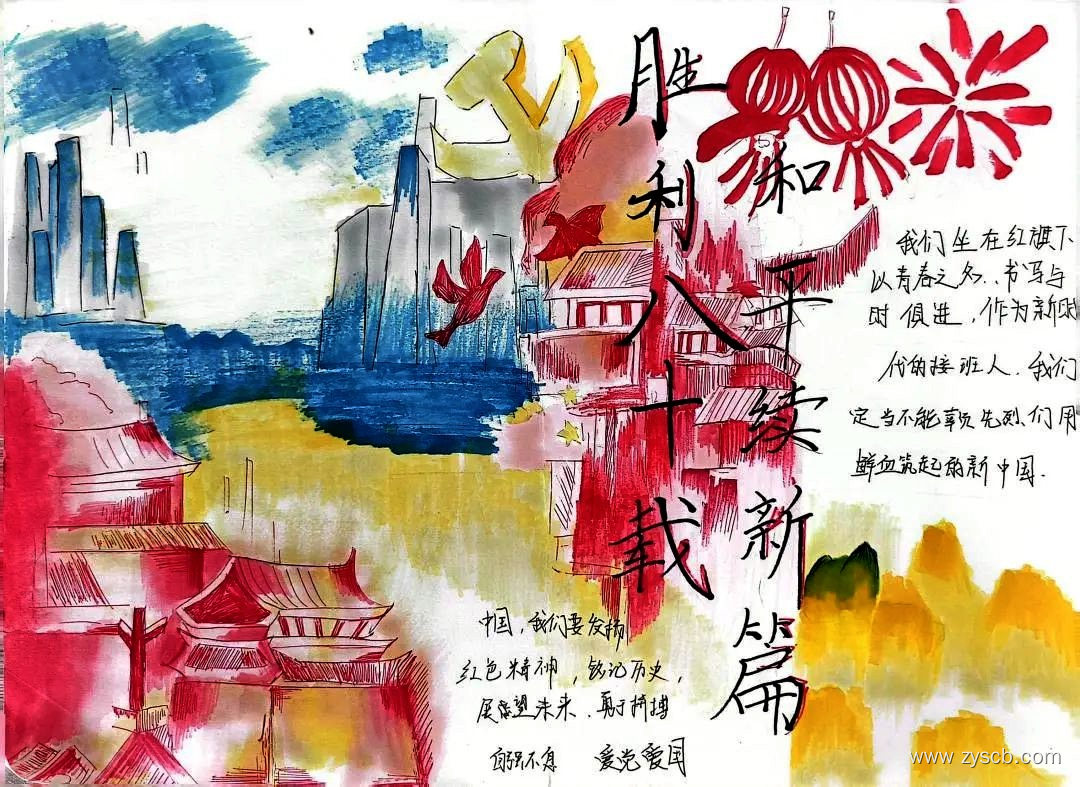 胜利八十载
和平续新篇
我们坐在红旗下
以青春之名,书写与
时俱进,作为新时
代的接班人,我们
定当不能辜负先烈们用
鲜血筑起的新中国.
中国,我们要发扬
红色精神,铭记历史,
展望未来、勇于拼搏
自强不息 爱党爱国
www.zyscb.com